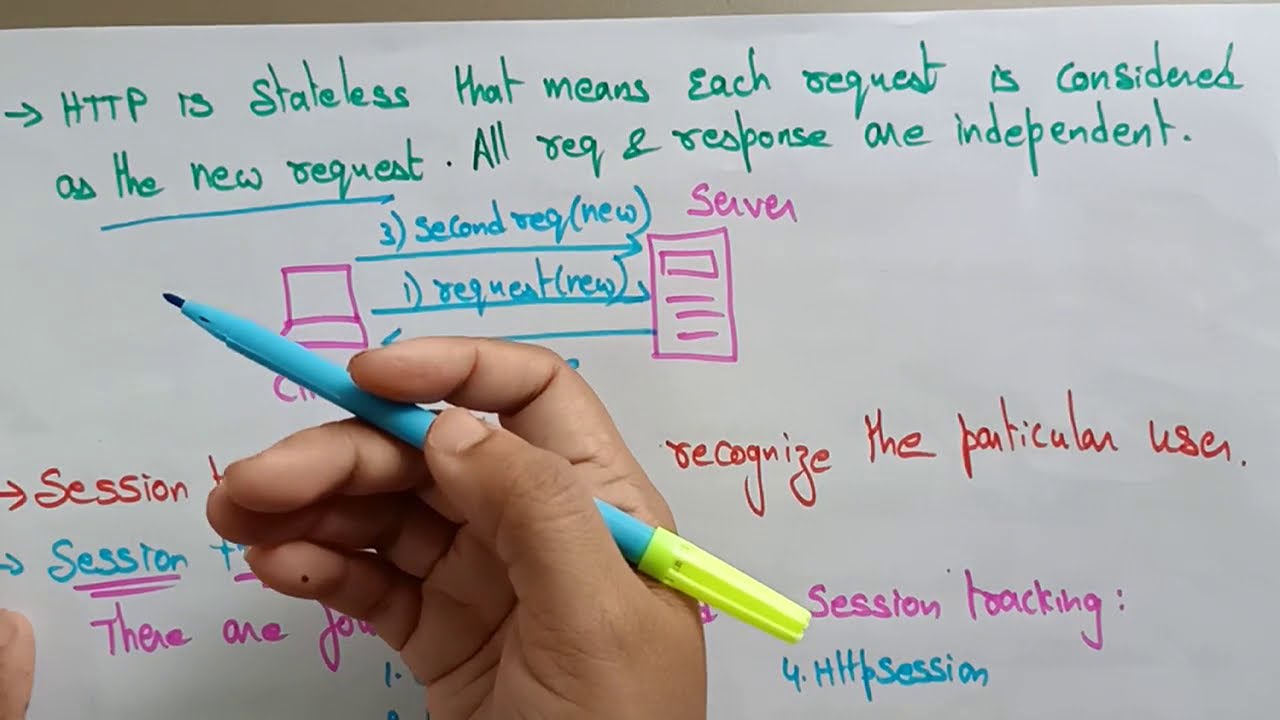 → HTTP is Stateless that means Each request is considered
as the new request. All req & response are independent.
Server
3) Second req(new)
1) request(new)
→ Session recognize the particular user.
→ Session
There are Session tracking:
1.
4. HttpSession